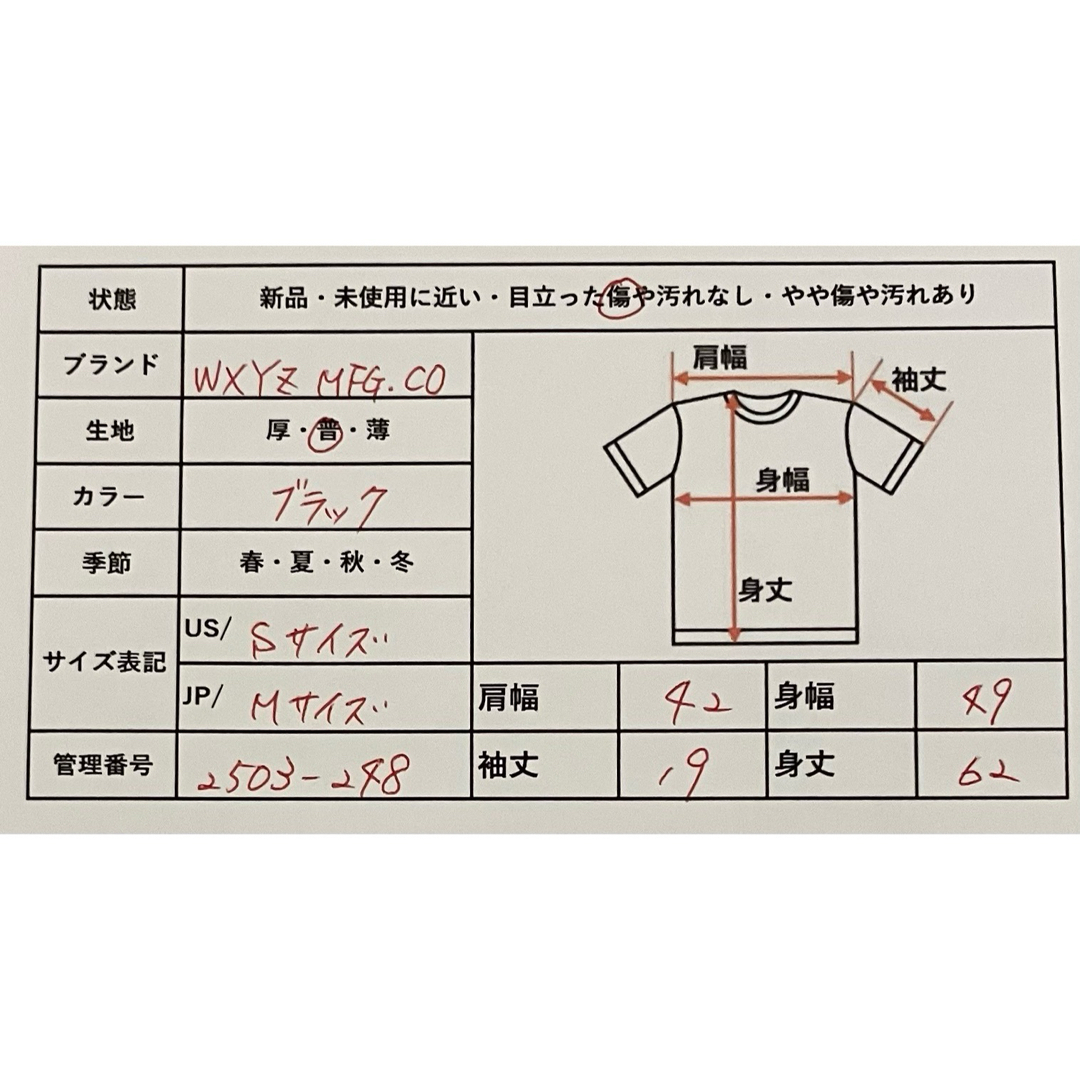 状態 新品・未使用に近い・目立った傷や汚れなし・やや傷や汚れあり
ブランド WXYZ MFG.CO
生地 厚・普・薄
カラー ブラック
季節 春・夏・秋・冬
サイズ表記 US/ Sサイズ
JP/ Mサイズ
管理番号 2503-248
肩幅
袖丈
身幅
身丈
肩幅 42 身幅 49
袖丈 19 身丈 62